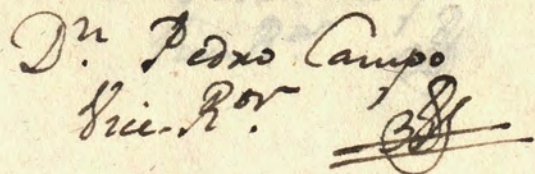 Dn. Pedro Campo
Vice-Ror.